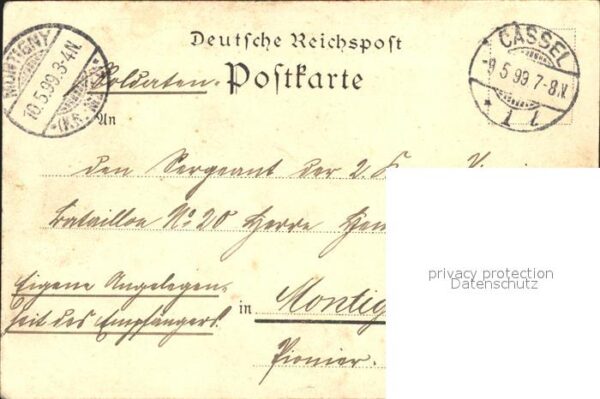 MONTIGNY
10.5.99.3-4N.
Deutsche Reichspost
Soldaten. Postkarte
CASSEL
-9.5.99 7-8.N.
* 1 1
An
den Sergeant der 2.
Bataillon No. 20 Herrn
Eigene Angelegen-
heit des Empfängers! in Montig
Pionier.
privacy protection
Datenschutz